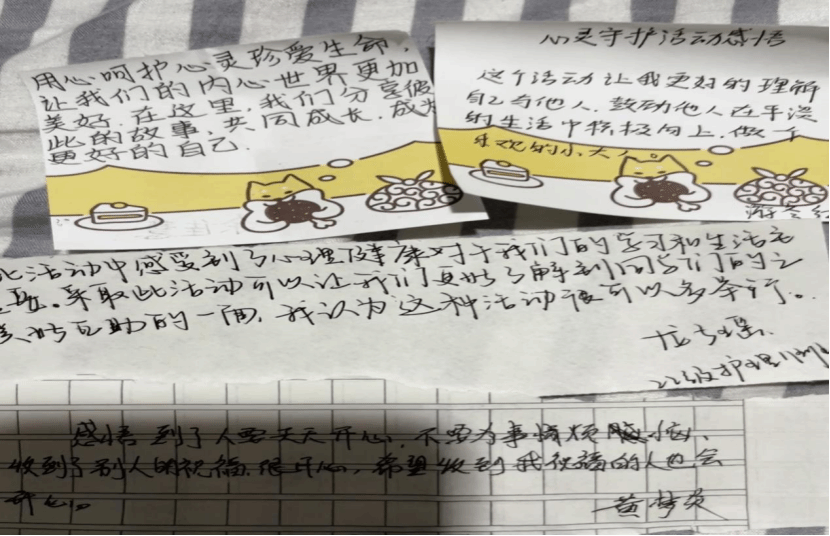 用心呵护心灵珍爱生命，
让我们的内心世界更加
美好.在这里,我们分享彼
此的故事,共同成长,成为
更好的自己.
心灵守护活动感悟
这个活动让我更好的理解
自己与他人.鼓励他人在平淡
的生活中积极向上.做个
乐观的小大人。
此活动中感受到了心理健康对于我们的学习和生活
采取此活动可以让我们更好了解到同学们的
互助的一面,我认为这种活动很可以多举行。
22级护理
感悟到了人要天天开心.不要为事情烦恼、
收到了别人的祝福很开心,希望收到我祝福的人也会
开心。